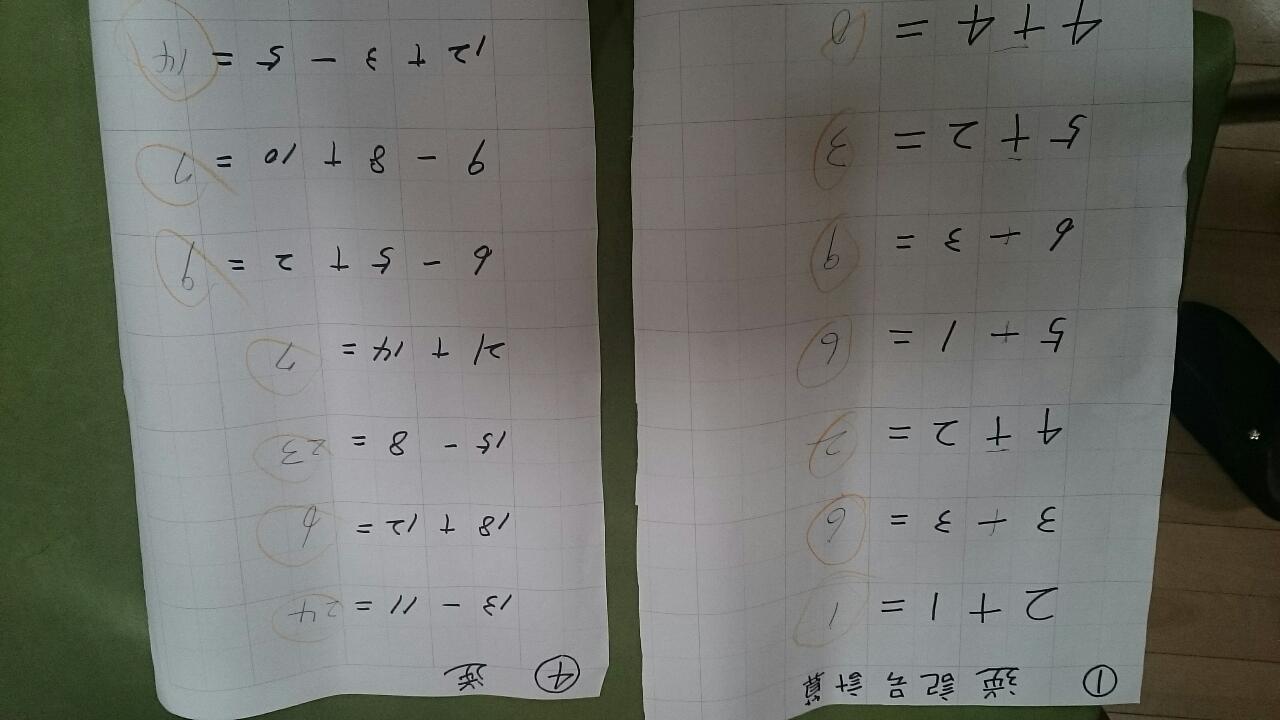 ① 逆記号計算
2 + 1 = 1
3 + 3 = 6
4 + 2 = 2
5 + 1 = 6
6 + 3 = 9
5 + 2 = 3
4 + 4 = 0
④ 逆
13 - 11 = 24
18 + 12 = 6
15 - 8 = 23
21 + 14 = 7
6 - 5 + 2 = 9
9 - 8 + 10 = 7
12 + 3 - 5 = 14